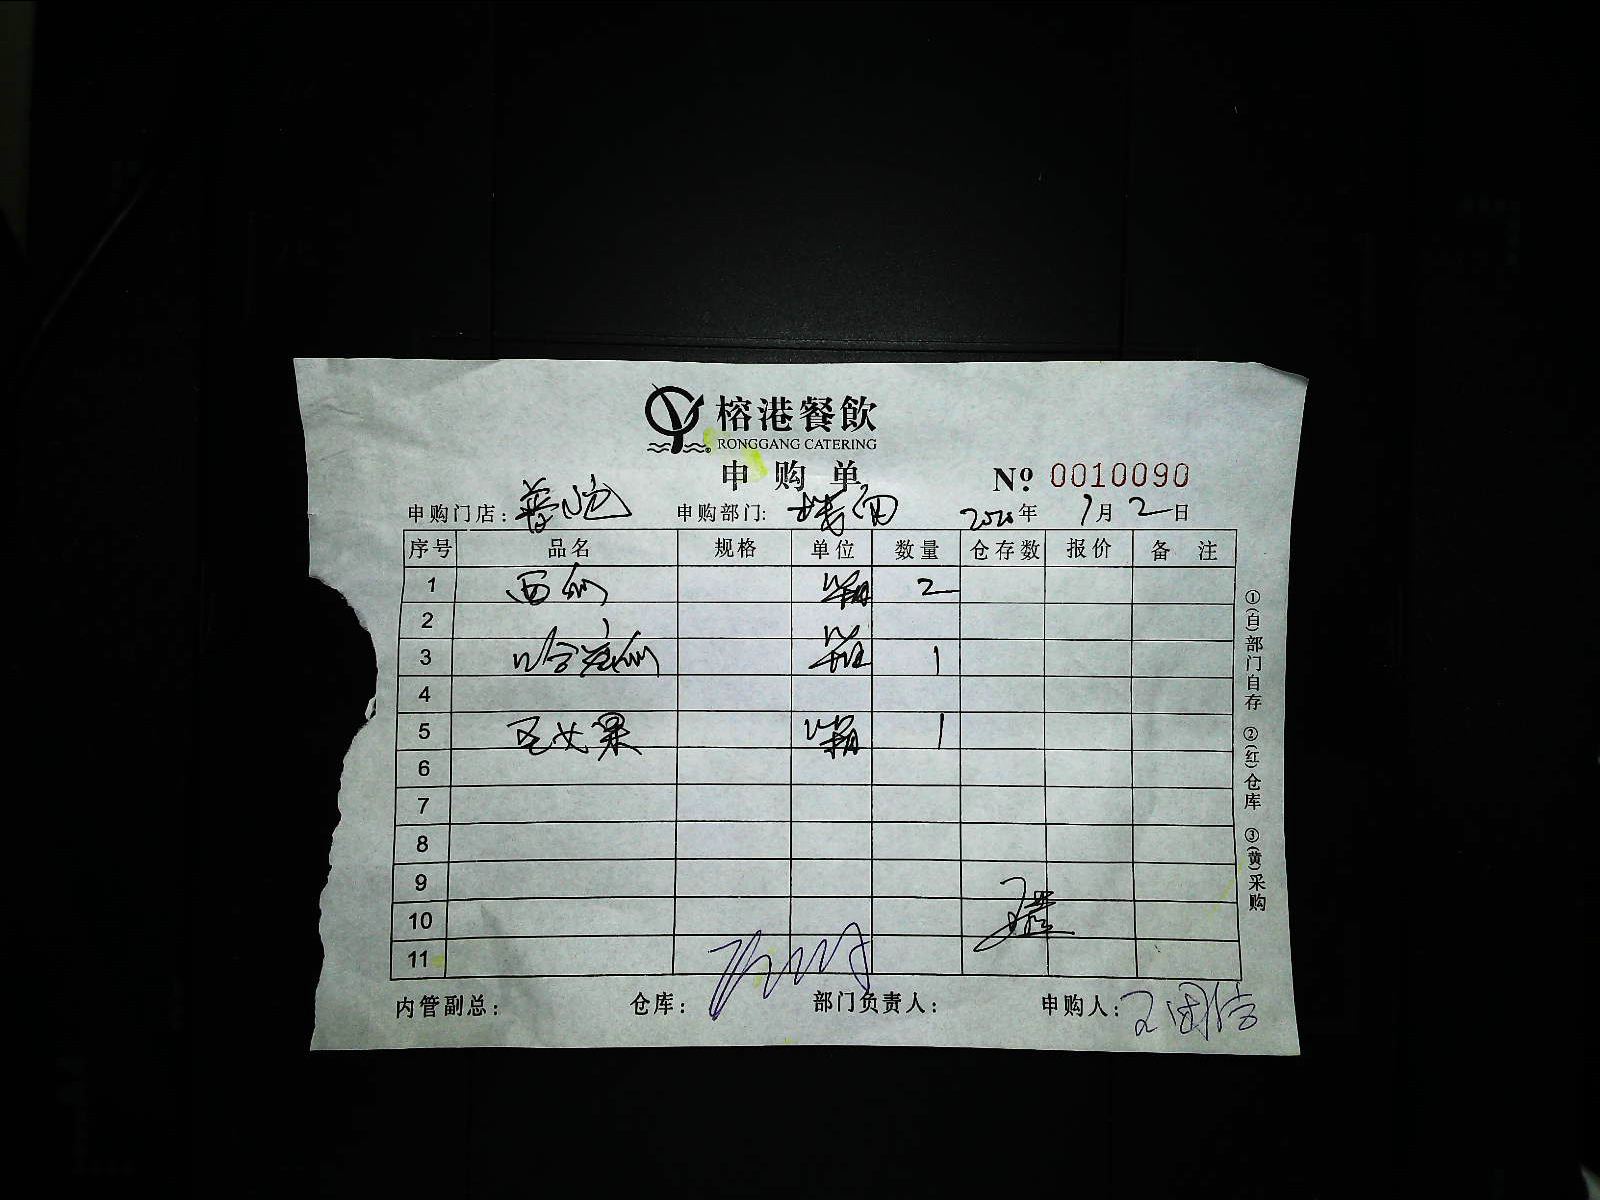 榕港餐飲
RONGGANG CATERING
申购单
№ 0010090
申购门店: 申购部门: 2020年 1月 2日
序号 品名 规格 单位 数量 仓存数 报价 备 注
1 西瓜 箱 2
2
3 哈密瓜 箱 1
4
5 圣女果 箱 1
6
7
8
9
10
11
内管副总: 仓库: 部门负责人: 申购人:
①(自)部门自存 ②(红)仓库 ③(黄)采购